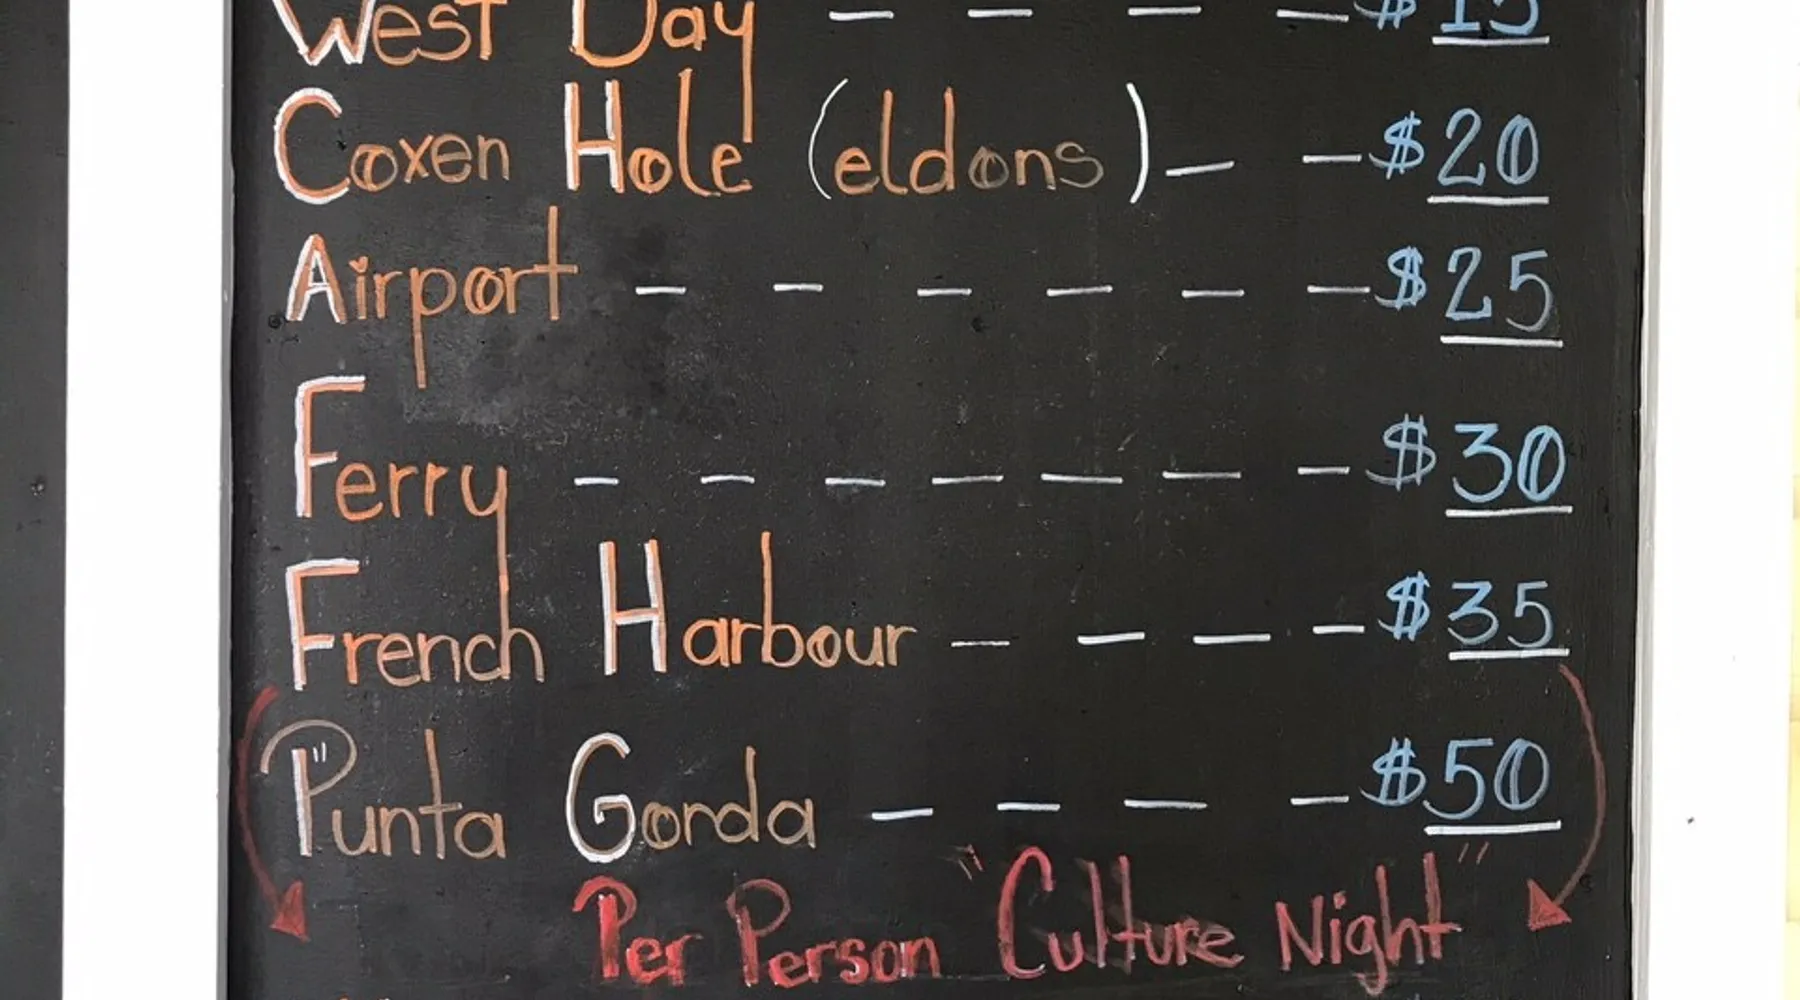 West Bay — — — — $ 15
Coxen Hole (eldons) — — $ 20
Airport — — — — — — $ 25
Ferry — — — — — — — $ 30
French Harbour — — — — $ 35
Punta Gorda — — — — $ 50
Per Person "Culture Night"